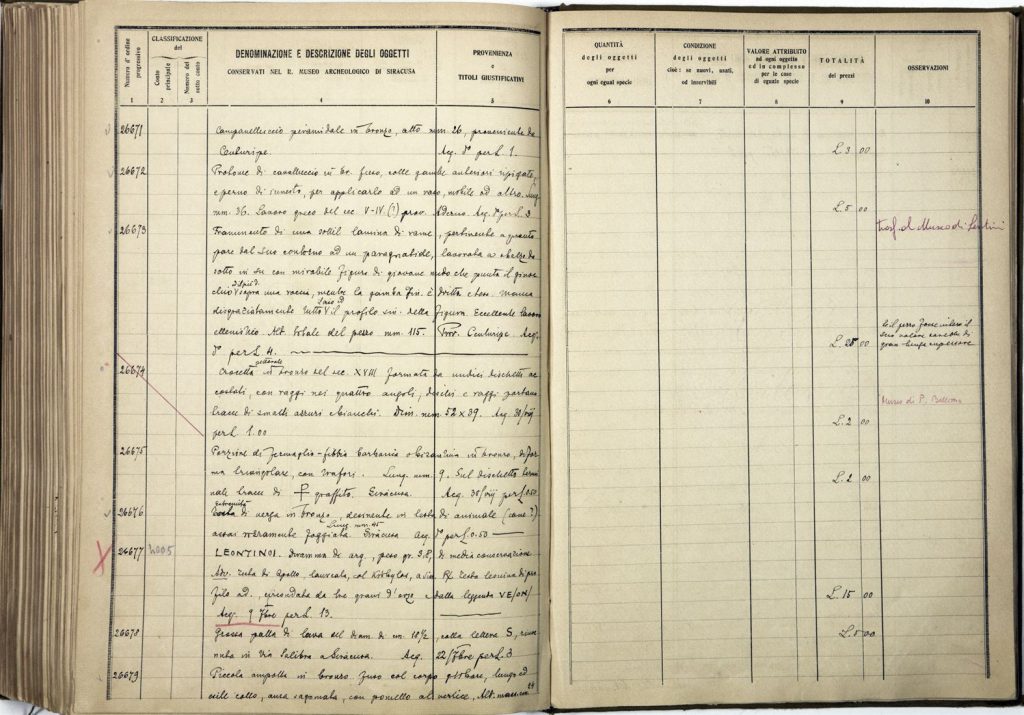 Numero d'ordine progressivo
CLASSIFICAZIONE del
Conto principale
Numero del sotto conto
DENOMINAZIONE E DESCRIZIONE DEGLI OGGETTI
CONSERVATI NEL R. MUSEO ARCHEOLOGICO DI SIRACUSA
PROVENIENZA
e
TITOLI GIUSTIFICATIVI
QUANTITÀ
degli oggetti
per
ogni egual specie
CONDIZIONE
degli oggetti
cioè: se nuovi, usati,
od inservibili
VALORE ATTRIBUITO
ad ogni oggetto
ed in complesso
per le cose
di eguale specie
TOTALITÀ
dei prezzi
OSSERVAZIONI
1 2 3 4 5 6 7 8 9 10
26671 Campanelluccio piramidale in bronzo, alto mm 26, proveniente da
Centuripe. Acq. d° per L. 1. L. 3 00
26672 Protome di cavalluccio in br. fuso, colle gambe anteriori ripigate,
e perno di innesto, per applicarlo ad un vaso, mobile ad altro. Lung.
mm. 36. Lavoro greco del sec. V-IV (?) prov. Adernò Acq. d° per L. 3 L. 5 00
26673 Frammento di una sottil lamina di rame, pertinente a quanto
pare dal suo contorno ad un paragnatide, lavorata a sbalzo da
sotto in su con mirabile figura di giovane nudo che punta il ginoc
chio sopra una roccia, mentre la gamba sin. è dritta e tesa. Manca
disgraziatamente tutto il profilo sin. della figura. Eccellente lavoro
ellenistico. Alt. totale del pezzo mm. 115. Prov. Centuripe. Acq.
d° per L. 4. L. 25 00
trasf. al Museo di Lentini
Se il pezzo fosse intero il
suo valore sarebbe di
gran lunga superiore
26674 Crocetta pettorale in bronzo del sec. XVIII formata da undici dischetti ac
costati, con raggi nei quattro angoli, dischi e raggi portano
tracce di smalti azzurri e bianchi. Dim. mm 52 x 39. Acq. 30/viij
per L. 1.00 L. 2 00
Museo di P. Bellomo
26675 Porzione di fermaglio-fibbia barbarica o bizantina in bronzo, di for
ma triangolare, con trafori. Lung. mm. 9. Sul dischetto termi
nale tracce di graffito. Siracusa. Acq. 30/viij per L. 0.50 L. 2 00
26676 estremità di verga in bronzo, desinente in testa di animale (cane?)
assai rozzamente foggiata Lung. mm. 45 Siracusa Acq. d° per L. 0.50
26677 LEONTINOI. Dramma di arg., peso gr. 3.8, di media conservazione
Adv. testa di Apollo, laureata, col krobylos, a sin. Rx Testa leonina di pro
filo ad., circondata da tre grani d'orzo e dalla leggenda
Acq. 9 7bre per L. 13. L. 15 00
26678 Grossa palla di lava del diam. di cm. 18 1/2, colla lettera S, rinve
nuta in Via Salibra a Siracusa. Acq. 22/7bre per L. 3 L. 5 00
26679 Piccola ampolla in bronzo fuso col corpo globare, lungo ed
esile collo, ansa sagomata, con pomello al vertice, Alt. massima